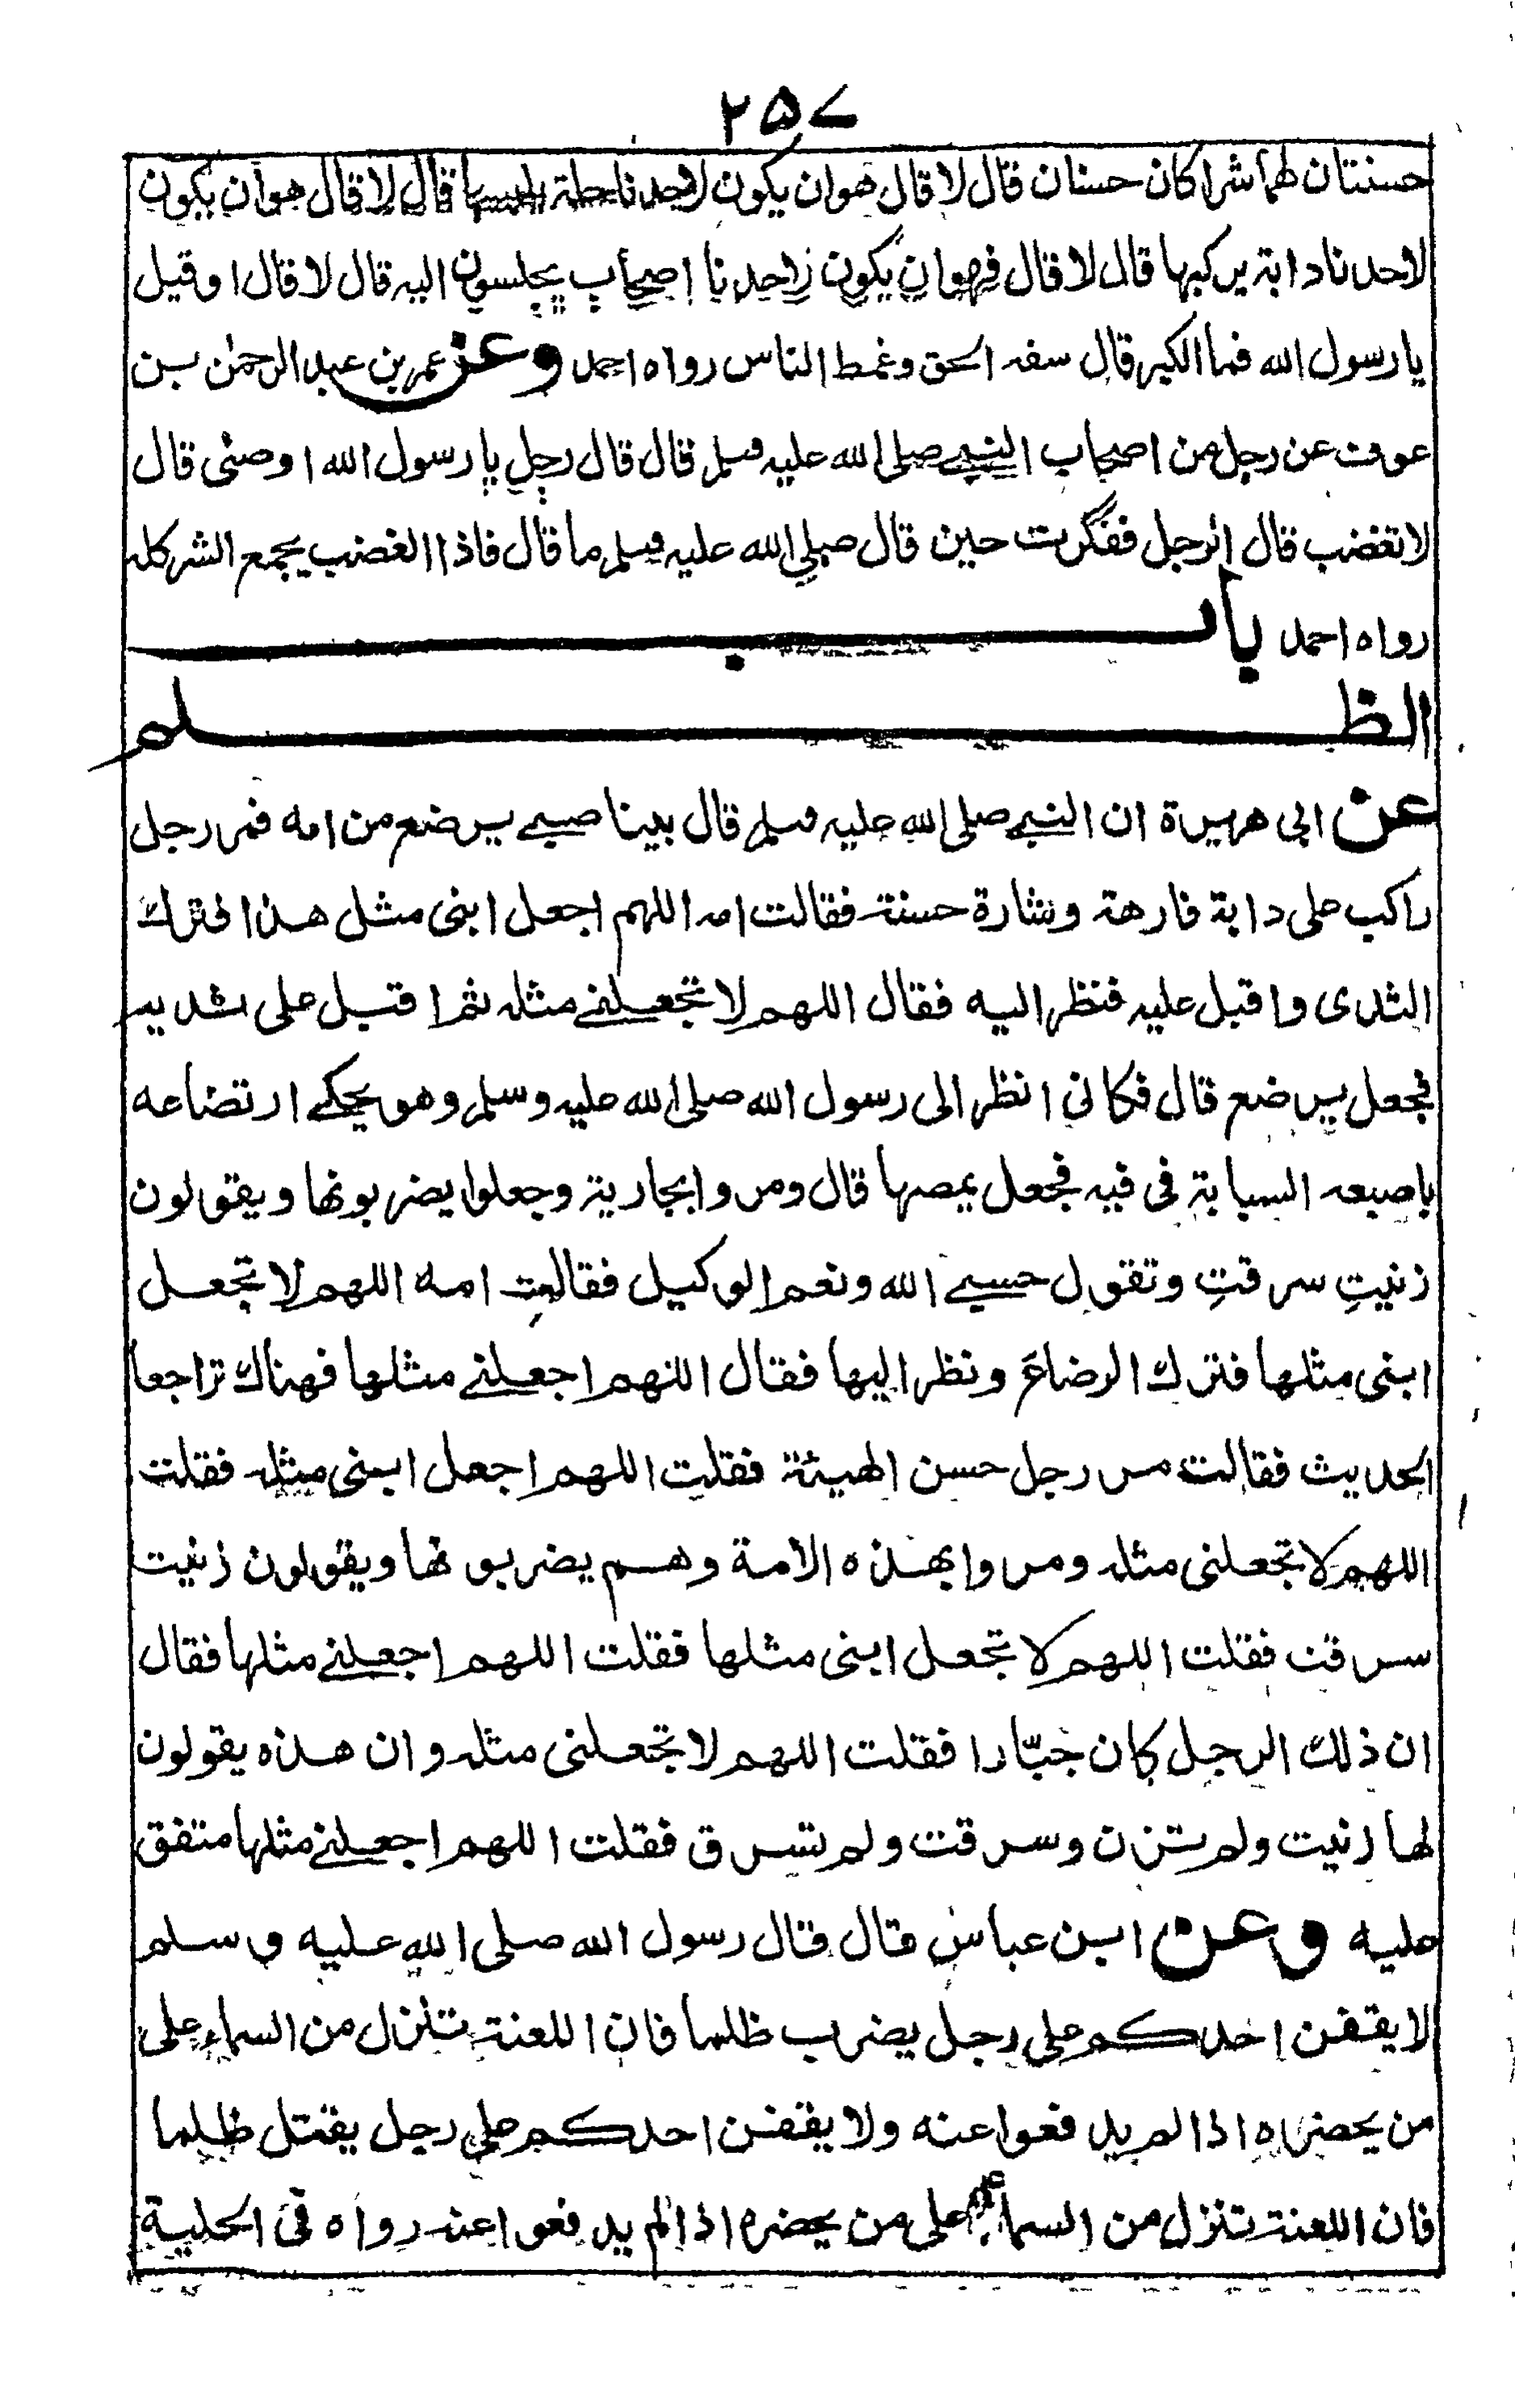 ٢٥٧
حسنتان لهما شراكان حسنان قال لا قال هو ان يكون لاحدنا حلة يلبسها قال لا قال هو ان يكون
لاحدنا دابة يركبها قال لا قال فهو ان يكون لاحدنا اصحاب يجلسون اليه قال لا قال او قيل
يا رسول الله فما الكبر قال سفه الحق وغمط الناس رواه احمد وعن عمر بن عبد الرحمٰن بن
عوف عن رجل من اصحاب النبي صلى الله عليه وسلم قال قال رجل يا رسول الله اوصنى قال
لا تغضب قال الرجل ففكرت حين قال صلى الله عليه وسلم ما قال فاذا الغضب يجمع الشر كله
رواه احمد باب
الظلم
عن ابى هريرة ان النبي صلى الله عليه وسلم قال بينا صبي يرضع من امه فمر رجل
راكب على دابة فارهة وشارة حسنة فقالت امه اللهم اجعل ابنى مثل هذا فترك
الثدى واقبل عليه فنظر اليه فقال اللهم لا تجعلنے مثله ثم اقبل على ثديه
فجعل يرضع قال فكانى انظر الى رسول الله صلى الله عليه وسلم وهو يحكے ارتضاعه
باصبعه السبابة فى فيه فجعل يمصها قال ومروا بجارية وجعلوا يضربونها ويقولون
زنيتِ سرقتِ وتقول حسبے الله ونعم الوكيل فقالت امه اللهم لا تجعل
ابنى مثلها فترك الرضاعَ ونظر اليها فقال اللهم اجعلنے مثلها فهناك تراجعا
الحديث فقالت مر رجل حسن الهيئة فقلت اللهم اجعل ابنى مثله فقلت
اللهم لا تجعلنى مثله ومروا بهذه الامة وهم يضربونها ويقولون زنيت
سرقت فقلت اللهم لا تجعل ابنى مثلها فقلت اللهم اجعلنے مثلها فقال
ان ذلك الرجل كان جبّارا فقلت اللهم لا تجعلنى مثله وان هذه يقولون
لها زنيت ولم تزن وسرقت ولم تسرق فقلت اللهم اجعلنے مثلها متفق
عليه وعن ابن عباس قال قال رسول الله صلى الله عليه وسلم
لا يقفن احدكم على رجل يضرب ظلما فان اللعنة تنزل من السماء على
من يحضراه اذا لم يدفعوا عنه ولا يقفن احدكم على رجل يقتل ظلما
فان اللعنة تنزل من السماء على من يحضره اذا لم يدفعوا عنه رواه فى الحلية